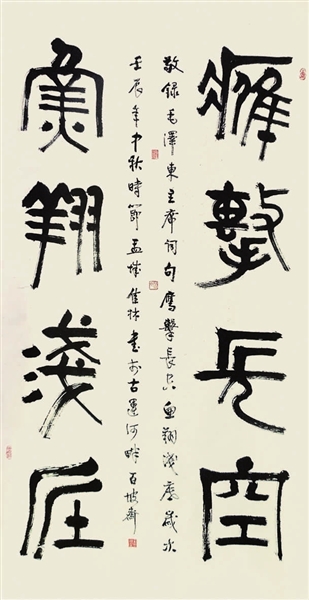 鷹擊長空
敬録毛澤東主席詞句鷹擊長空魚翔淺底歲次
壬辰年中秋時節孟城佳林書於古運河畔百坡齋
魚翔淺底